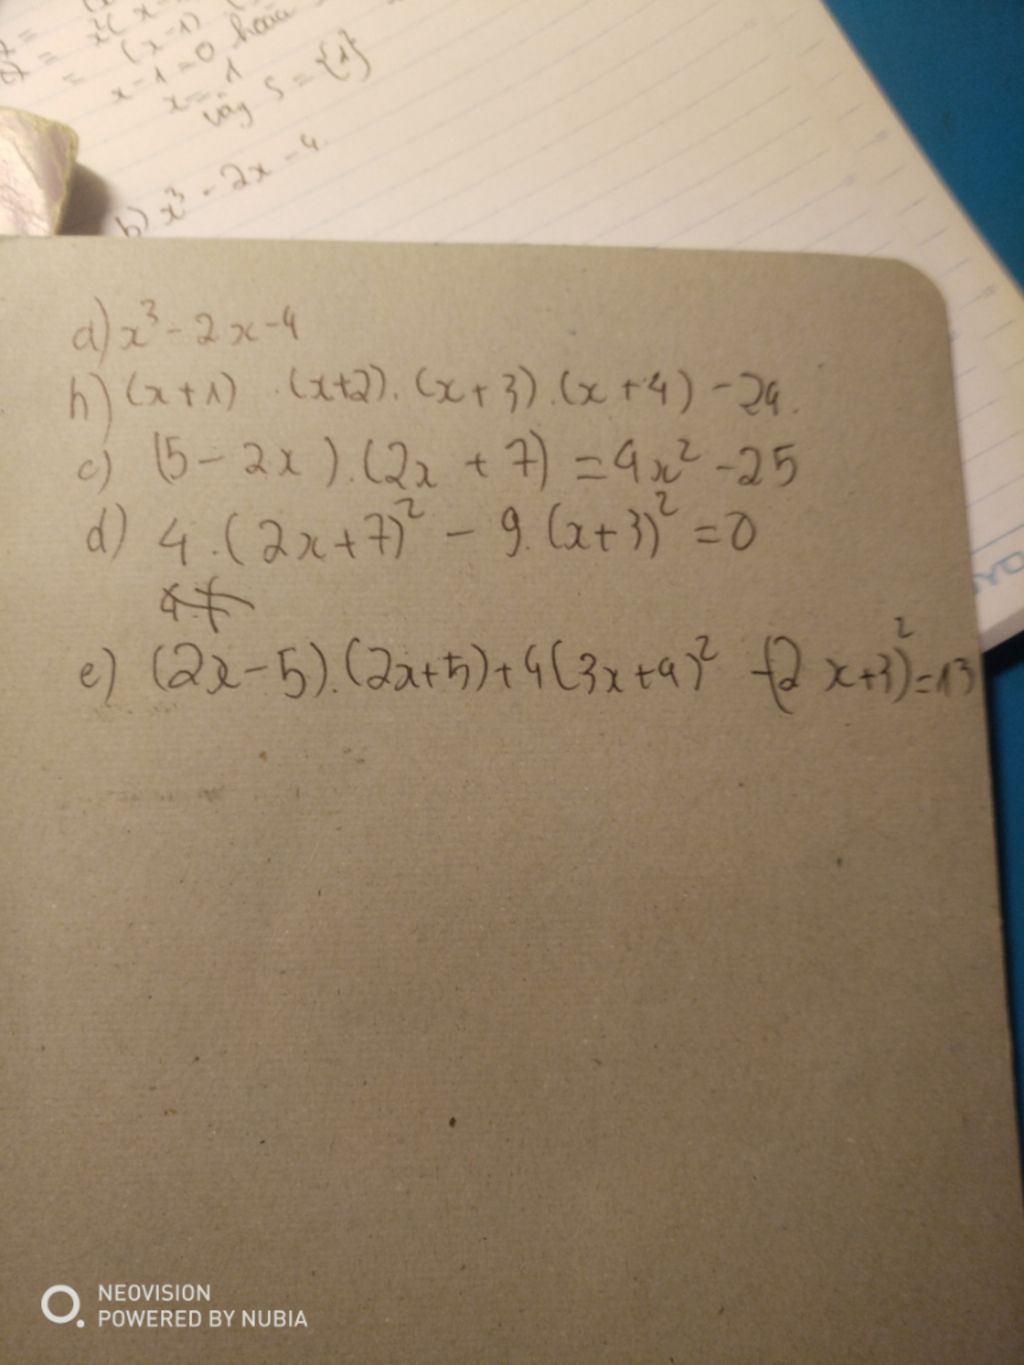 x²(x-
= (x-1)
x-1=0 hoặc
x=1
vậy S={1}
b) x³ - 2x - 4.
a) x³ - 2x - 4
b) (x+1) . (x+2) . (x+3) . (x+4) - 24.
c) (5 - 2x) . (2x + 7) = 4x² - 25
d) 4 . (2x+7)² - 9 . (x+3)² = 0
e) (2x - 5) . (2x+5) + 4(3x+4)² - (2x+3)² = 13
NEOVISION
POWERED BY NUBIA